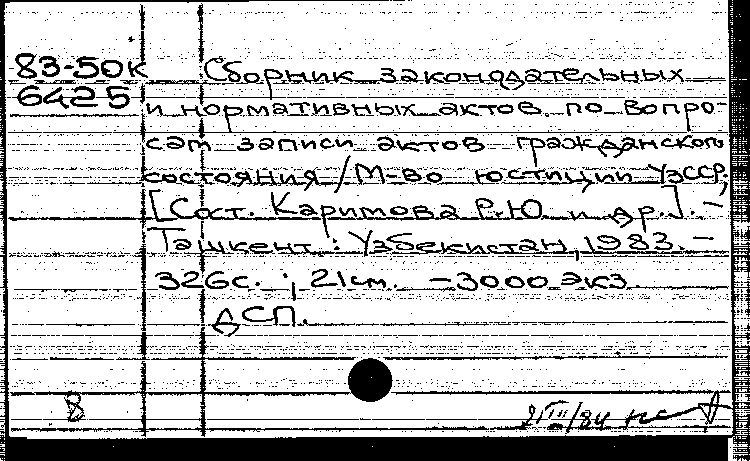 83-50к
6425
Сборник законодательных
и нормативных актов по вопро-
сам записи актов гражданского
состояния / М-во юстиции УзССР;
[Сост. Каримова Р.Ю. и др.]. –
Ташкент : Узбекистан, 1983. –
326с. ; 21см. – 3000 экз.
ДСП.
8